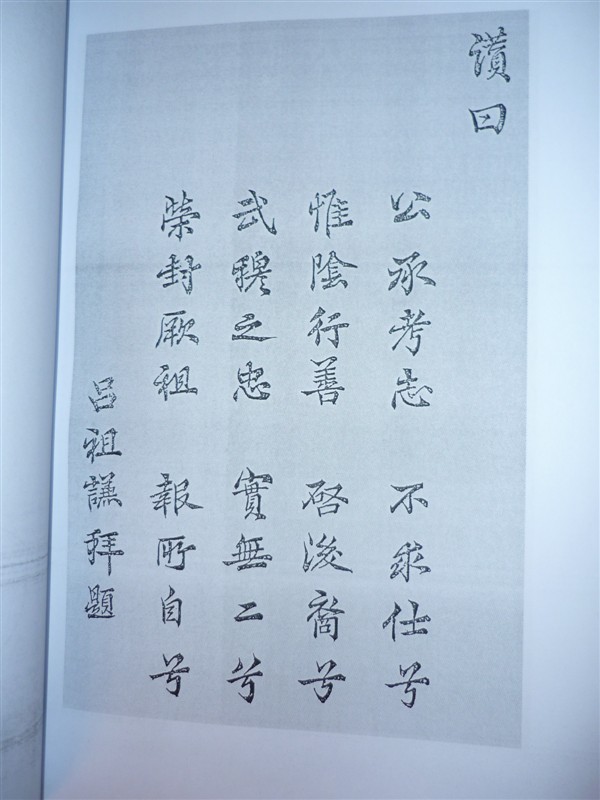 讚曰
公承考志 不求仕兮
惟陰行善 啓後裔兮
武穆之忠 實無二兮
榮封厥祖 報所自兮
呂祖謙拜題